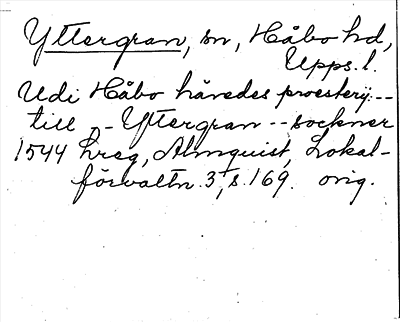 Yttergran, sn, Håbo hd,
Upps. l.
Udi Håbo häredes proesterij --
till -- Yttergran -- sockner
1544 hreg, Almquist, Lokal-
förvaltn. 3, s. 169. orig.